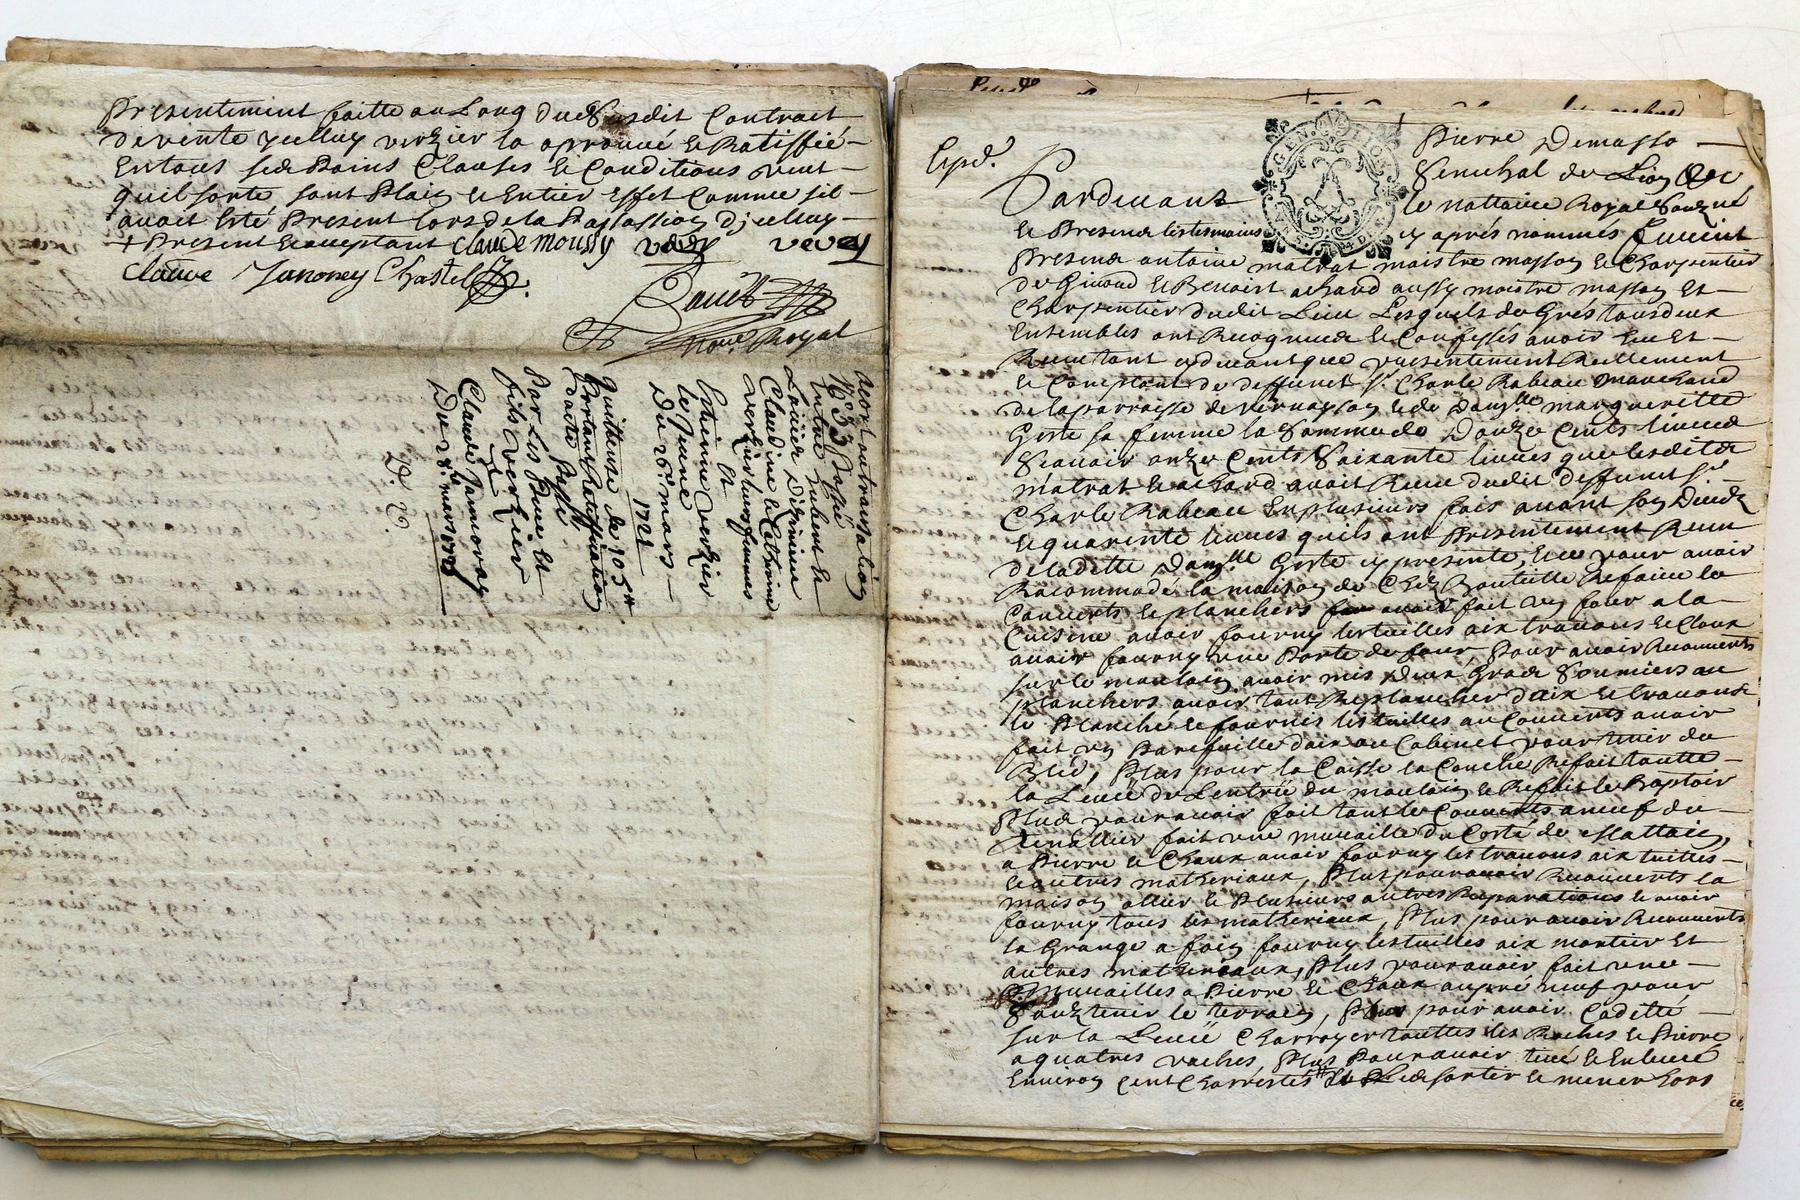 Presentement faitte au Long du Susdit Contract
de vente yelluy verzier la aprouué et Ratiffié
En tous ses Poins Clauses et Conditions veut
quil sorte sont Plain et Entier Effet Comme sil
auoit Esté Present lors de la Passassion dycelluy
+ Present et acceptant claude moussy verzy vevey
claüve Janorey Chastel
Royal
acort ou transation
N° 83 Passé
Entre rubent et
Claudine et Caterine
verzier leurs femmes
Et
Estienne verzier
le Jeune
Du 26e mars
1721
Quittance de 105 ₶
Portant Ratiffication
dacte Passé
Par Les Pere et
fils verzier
a
Claude Jannoray
Du 28e mars 1728
D. C.
Expd.
GEN. LION
Pardeuant Pierre Demasso
Senechal de Lion et
le nottaire Royal Souzné
et Presens les tesmoins cy aprés nommés furent
Presens antoine matrat maistre masson et Charpentier
de Giuord et Benoist achard aussy maistre masson Et
Charpentier dudit Lieu Lesquels de Grés tous deux
Ensembles ont Recogneus et Confessés auoir Eu Et
Receu tant cydeuant que presentement Reellement
et Comptant de deffunct Sr. Charle Rabeau marchand
de la parroisse de vernaysson et de damlle margueritte
Goste sa femme la Somme de Douze Cents liures
Scauoir onze Cents Soixante liures que lesdits
matrat et achard auoit Receu dudit deffunct Sr
Charle Rabeau En plusieurs fois auant son Deceds
et quarente liures quils ont Presentement Receu
de laditte damlle Goste cy presente, et ce pour auoir
Racommodé la maison de Chez Bouteille Refaire le
Couuerts et planchers auoir fait vn four a la
Cuisine auoir fourny les tuilles aix trauons et Cloux
auoir fourny vne Porte de four, Pour auoir Recouuerts
sur le moulain auoir mis deux Gros Soumiers au
planchers auoir tout Replancher daix et trauons
le Planché et fournis les tuilles au Couuerts auoir
fait vn Parefeuille daix au Cabinet pour tenir du
Bled, Plus pour la Caisse la Couche Refait toutte
la Leueé de Lentreé du moulain et Refait le Baptoir
Plus pour auoir fait tout le Couuerts a neuf du
fait vne muraille du Costé de
a Pierre et Chaux auoir fourny les trauons aix tuilles
et autres matheriaux, Plus pour auoir Recouuerts la
maison allier et Plusieurs autres Reparations et auoir
fourny tous les matheriaux, Plus pour auoir Recouuerts
la Grange a foin fourny les tuilles aix mortier Et
autres matheriaux, Plus pour auoir fait vne
murailles a Pierre et Chaux au pré neuf pour
Souztenir le terrain, Plus pour auoir Cadetté
sur la Leueé Charroyer touttes les Roches et Pierre
a quatres vaches, Plus Pour auoir tiré et Enleué
Enuiron Cent Charretés sortir et mener hors